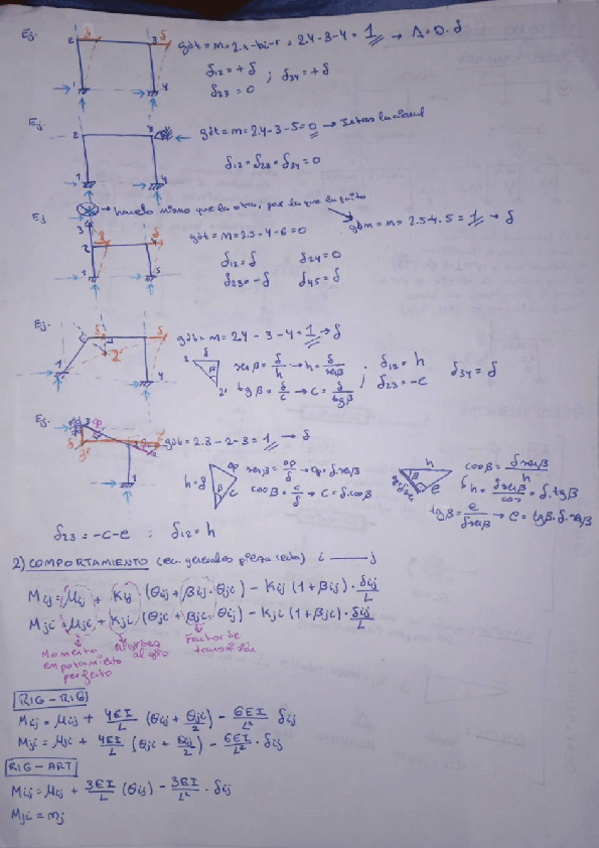 Ej.
2 3 δ 1 4
gdt = m = 2.4 - bi - r = 2.4 - 3 - 4 = 1 → Δ = D. δ
δ12 = + δ ; δ34 = + δ
δ23 = 0
Ej.
2 3 1 4
gdt = m = 2.4 - 3 - 5 = 0 → Intraslacional
δ12 = δ23 = δ34 = 0
→ hace lo mismo que la otra, por lo que la quito
Ej
3 2 δ δ 1 5
gdt = m = 2.5 - 4 - 6 = 0
gdm = m = 2.5 - 4. 5 = 1 → δ
δ12 = δ δ24 = 0
δ23 = -δ δ45 = δ
Ej.
δ δ 1 2' 4
gdt = m = 2.4 - 3 - 4 = 1 → δ
2 δ β 2'
sen β = δ/h → h = δ/sen β ; δ12 = h δ34 = δ
tg β = δ/c → c = δ/tg β δ23 = -c
Ej.
3 δ 3' 2' 1
gdt = 2.3 - 2 - 3 = 1 → δ
h = δ β c
sen β = op/δ → op = δ. sen β
cos β = c/δ → c = δ. cos β
h β e
cos β = δ sen β/h
h = δ sen β/cos = δ. tg β
tg β = e/δ sen β → e = tg β. δ. sen β
δ23 = -c - e ; δ12 = h
2) COMPORTAMIENTO (en general pieza recta) i —— j
Mij = μij + Kij (θij + βij. θji) - Kij (1 + βij). δij/L
Mji = μji + Kji (θji + βji. θij) - Kji (1 + βji). δij/L
Momento empotamiento perfecto
Rigidez al giro
Factor de transmisión
RIG - RIG
Mij = μij + 4EI/L (θij + θji/2) - 6EI/L² δij
Mji = μji + 4EI/L (θji + θij/2) - 6EI/L². δij
RIG - ART
Mij = μij + 3EI/L (θij) - 3EI/L². δij
Mji = mj